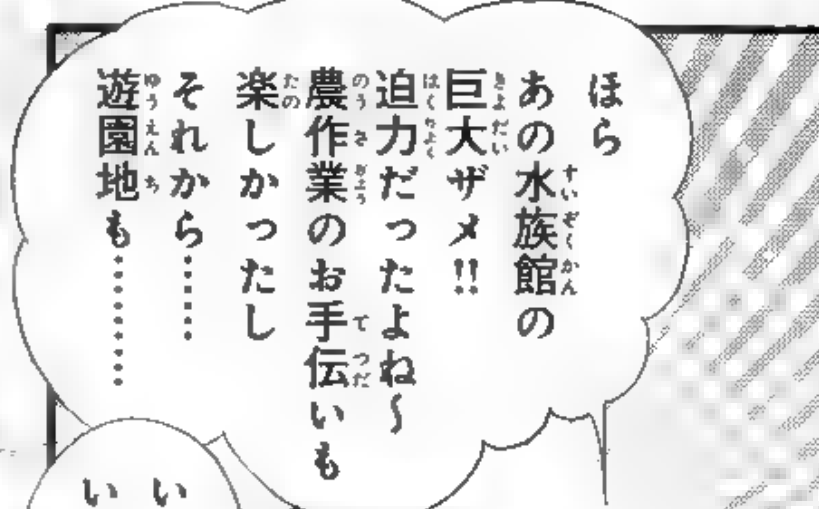 ほら
あの水族館の
巨大ザメ!!
迫力だったよね〜
農作業のお手伝いも
楽しかったし
それから……
遊園地も…………
い
い